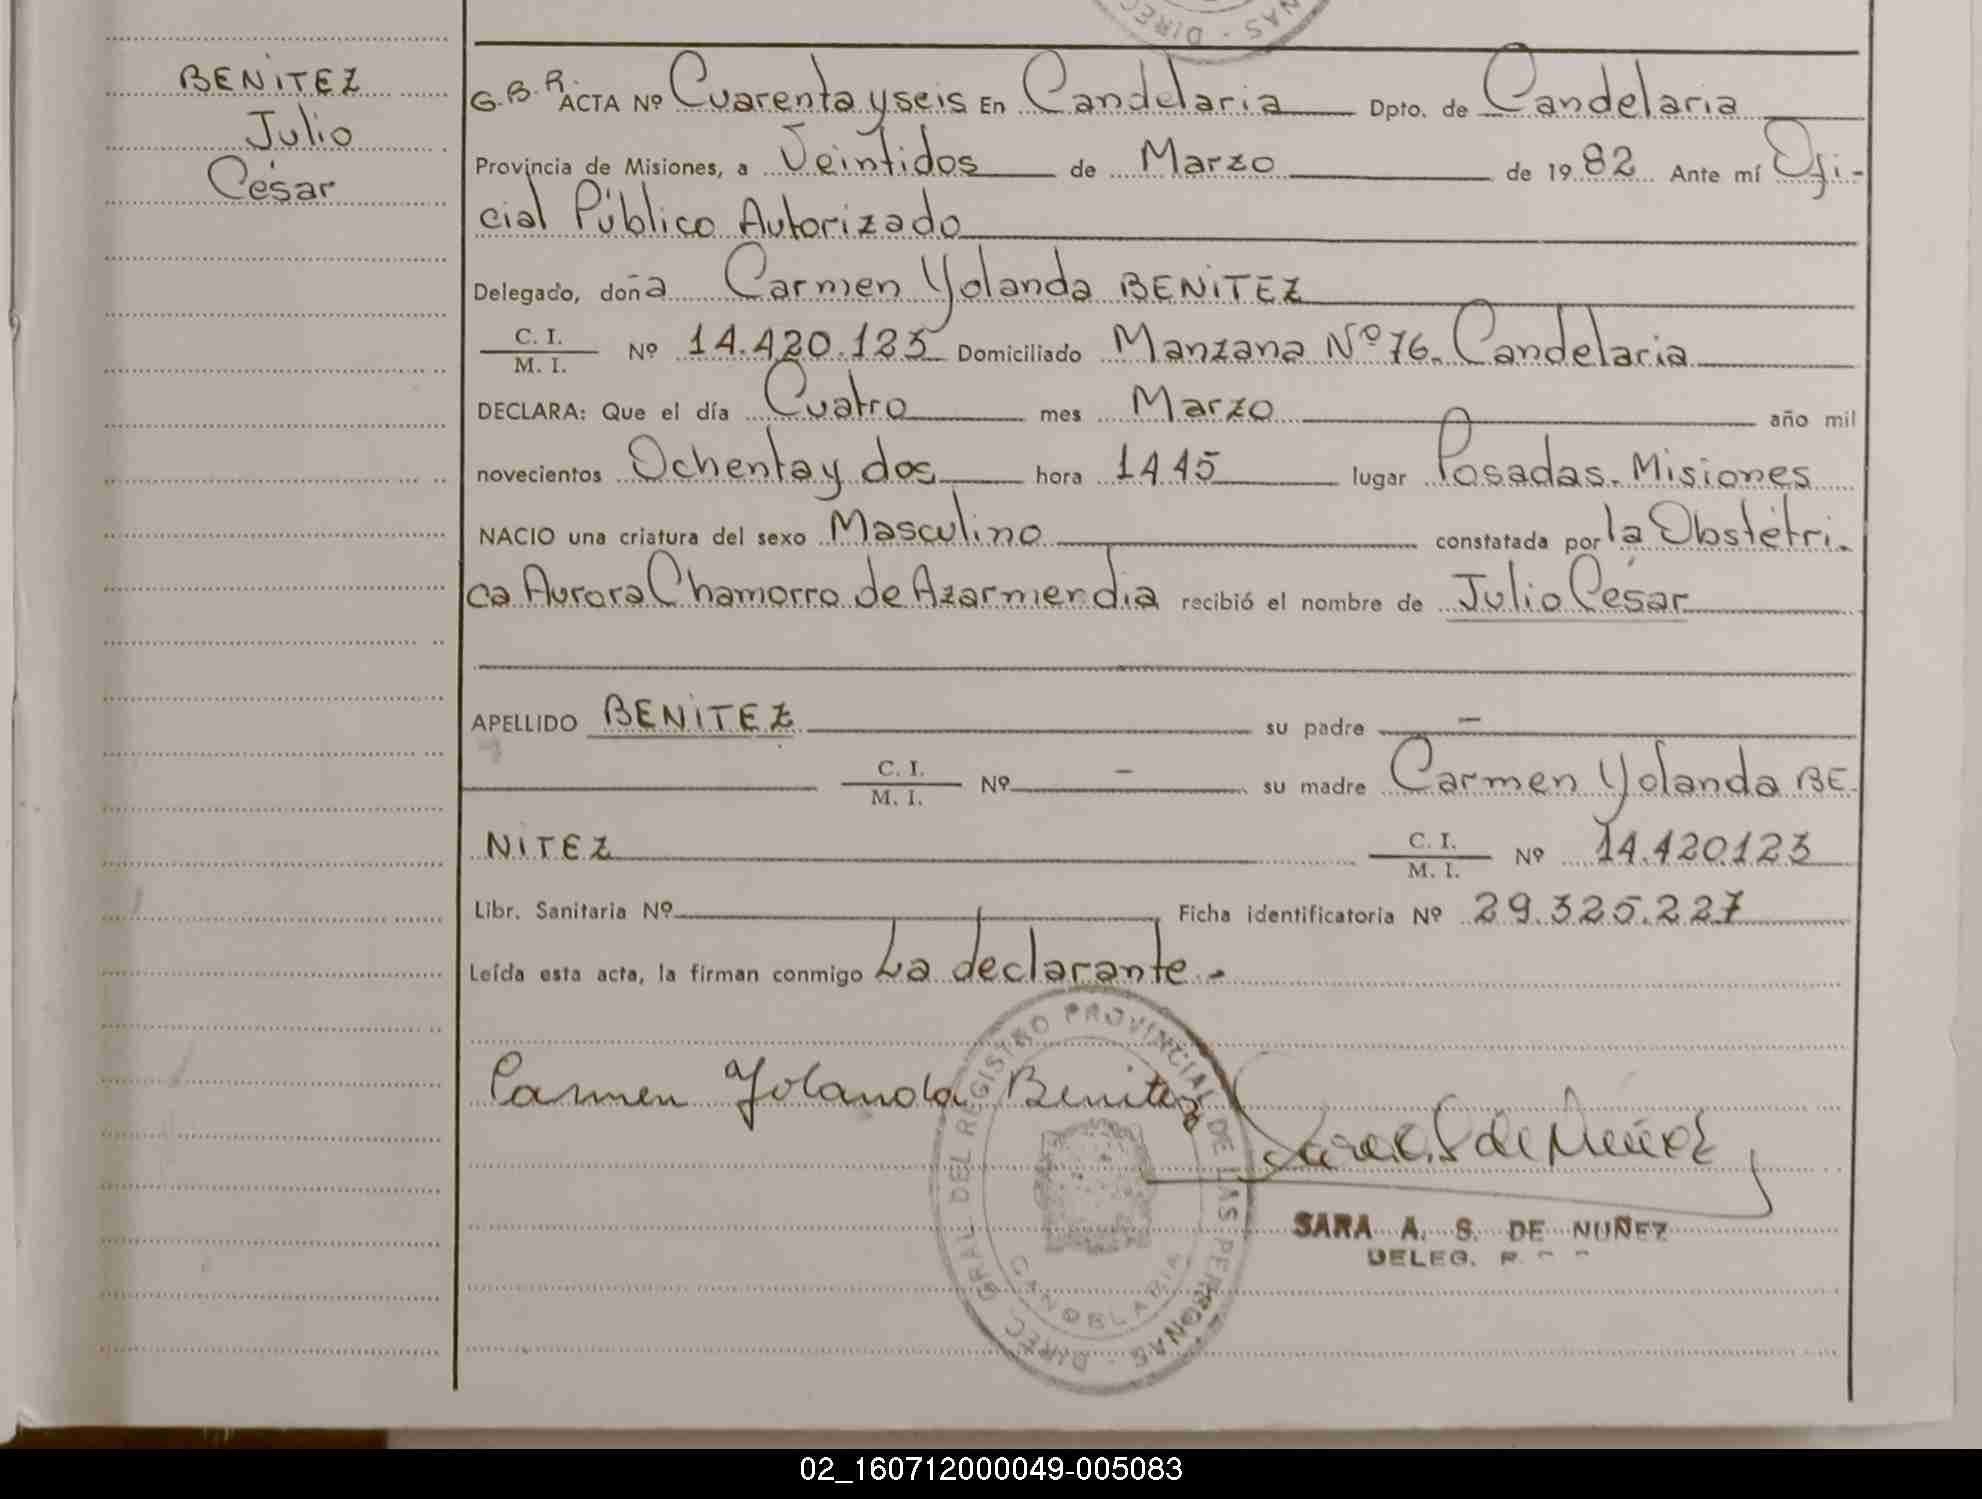 DIREC - NAS
BENITEZ
Julio
César
G.B.R. ACTA Nº Cuarenta y seis En Candelaria Dpto. de Candelaria
Provincia de Misiones, a Veintidos de Marzo de 1982 Ante mí Ofi-
cial Público Autorizado
Delegado, doña Carmen Yolanda BENITEZ
C. I.
M. I. Nº 14.420.123 Domiciliado Manzana Nº 76. Candelaria
DECLARA: Que el día Cuatro mes Marzo año mil
novecientos Ochenta y dos hora 14.45 lugar Posadas. Misiones
NACIO una criatura del sexo Masculino constatada por la Obstétri-
ca Aurora Chamorro de Azarmendia recibió el nombre de Julio César
APELLIDO BENITEZ su padre -
C. I.
M. I. Nº - su madre Carmen Yolanda BE-
NITEZ C. I.
M. I. Nº 14.420.123
Libr. Sanitaria Nº Ficha identificatoria Nº 29.325.227
Leída esta acta, la firman conmigo La declarante.-
Carmen Yolanda Benitez
DIREC. GRAL DEL REGISTRO PROVINCIAL DE LAS PERSONAS -
CANDELARIA
SARA A. S. DE NUÑEZ
DELEG. R.
02_160712000049-005083